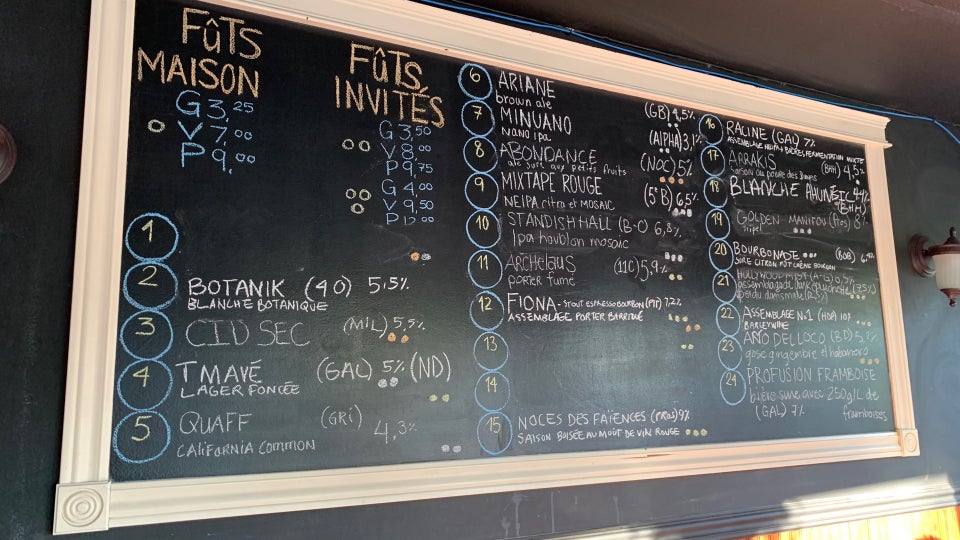 FûTS
MAISON
G 3,25
V 7,00
P 9,00
FûTS
INVITÉS
G 3,50
V 8,00
P 9,75
G 4,00
V 9,50
P 12,00
1
2
BOTANIK (40) 5,5%
BLANCHE BOTANIQUE
3
CID SEC (MIL) 5,5%
4
TMAVÉ (GAL) 5% (ND)
LAGER FONCÉE
5
QUAFF (GRI) 4,3%
CALIFORNIA COMMON
6
ARIANE (GB) 4,5%
brown ale
7
MINUANO (AlPHA) 3,1%
nano ipa
8
ABONDANCE (NOC) 5%
ale sure aux petits fruits
9
MIXTAPE ROUGE (5°B) 6,5%
NEIPA citra et MOSAIC
10
STANDISH HALL (B-O 6,8%
Ipa houblon mosaic
11
ARCHELAUS (11C) 5,9%
porter fumé
12
FIONA - STOUT ESPRESSO BOURBON (PIT) 7,2%
ASSEMBLAGE PORTER BARRIQUE
13
14
15
NOCES DES FAÏENCES (FROS) 9%
SAISON BOISÉE AU MOÛT DE VIN ROUGE
16
RACINE (GAL) 7%
ASSEMBLAGE BIÈRES, FERMENTATION MIXTE
17
ARRAKIS (BHH) 4,5%
saison au poivre des
18
BLANCHE (BHH)
19
GOLDEN MANITOU (FROS) 8%
Tripel
20
BOURBONADE (BOB)
SURE CITRON FÛT CHÊNE BOURBON
21
HOLLYWOOD
assemblage
22
ASSEMBLAGE No 1 (HOP) 10%
BARLEYWINE
23
AÑO DEL LOCO (BD) 5,
gose gingembre et habanero
24
PROFUSION FRAMBOISE
bière sure avec 250g/L de framboises
(GAL) 7%